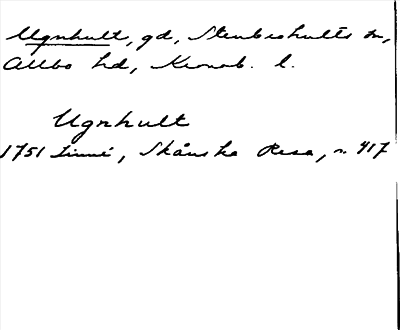 Ugnhult, gd, Stenbrohults sn,
Allbo hd, Kronob. l.
Ugnhult
1751 Linné, Skånska Resa, s. 417